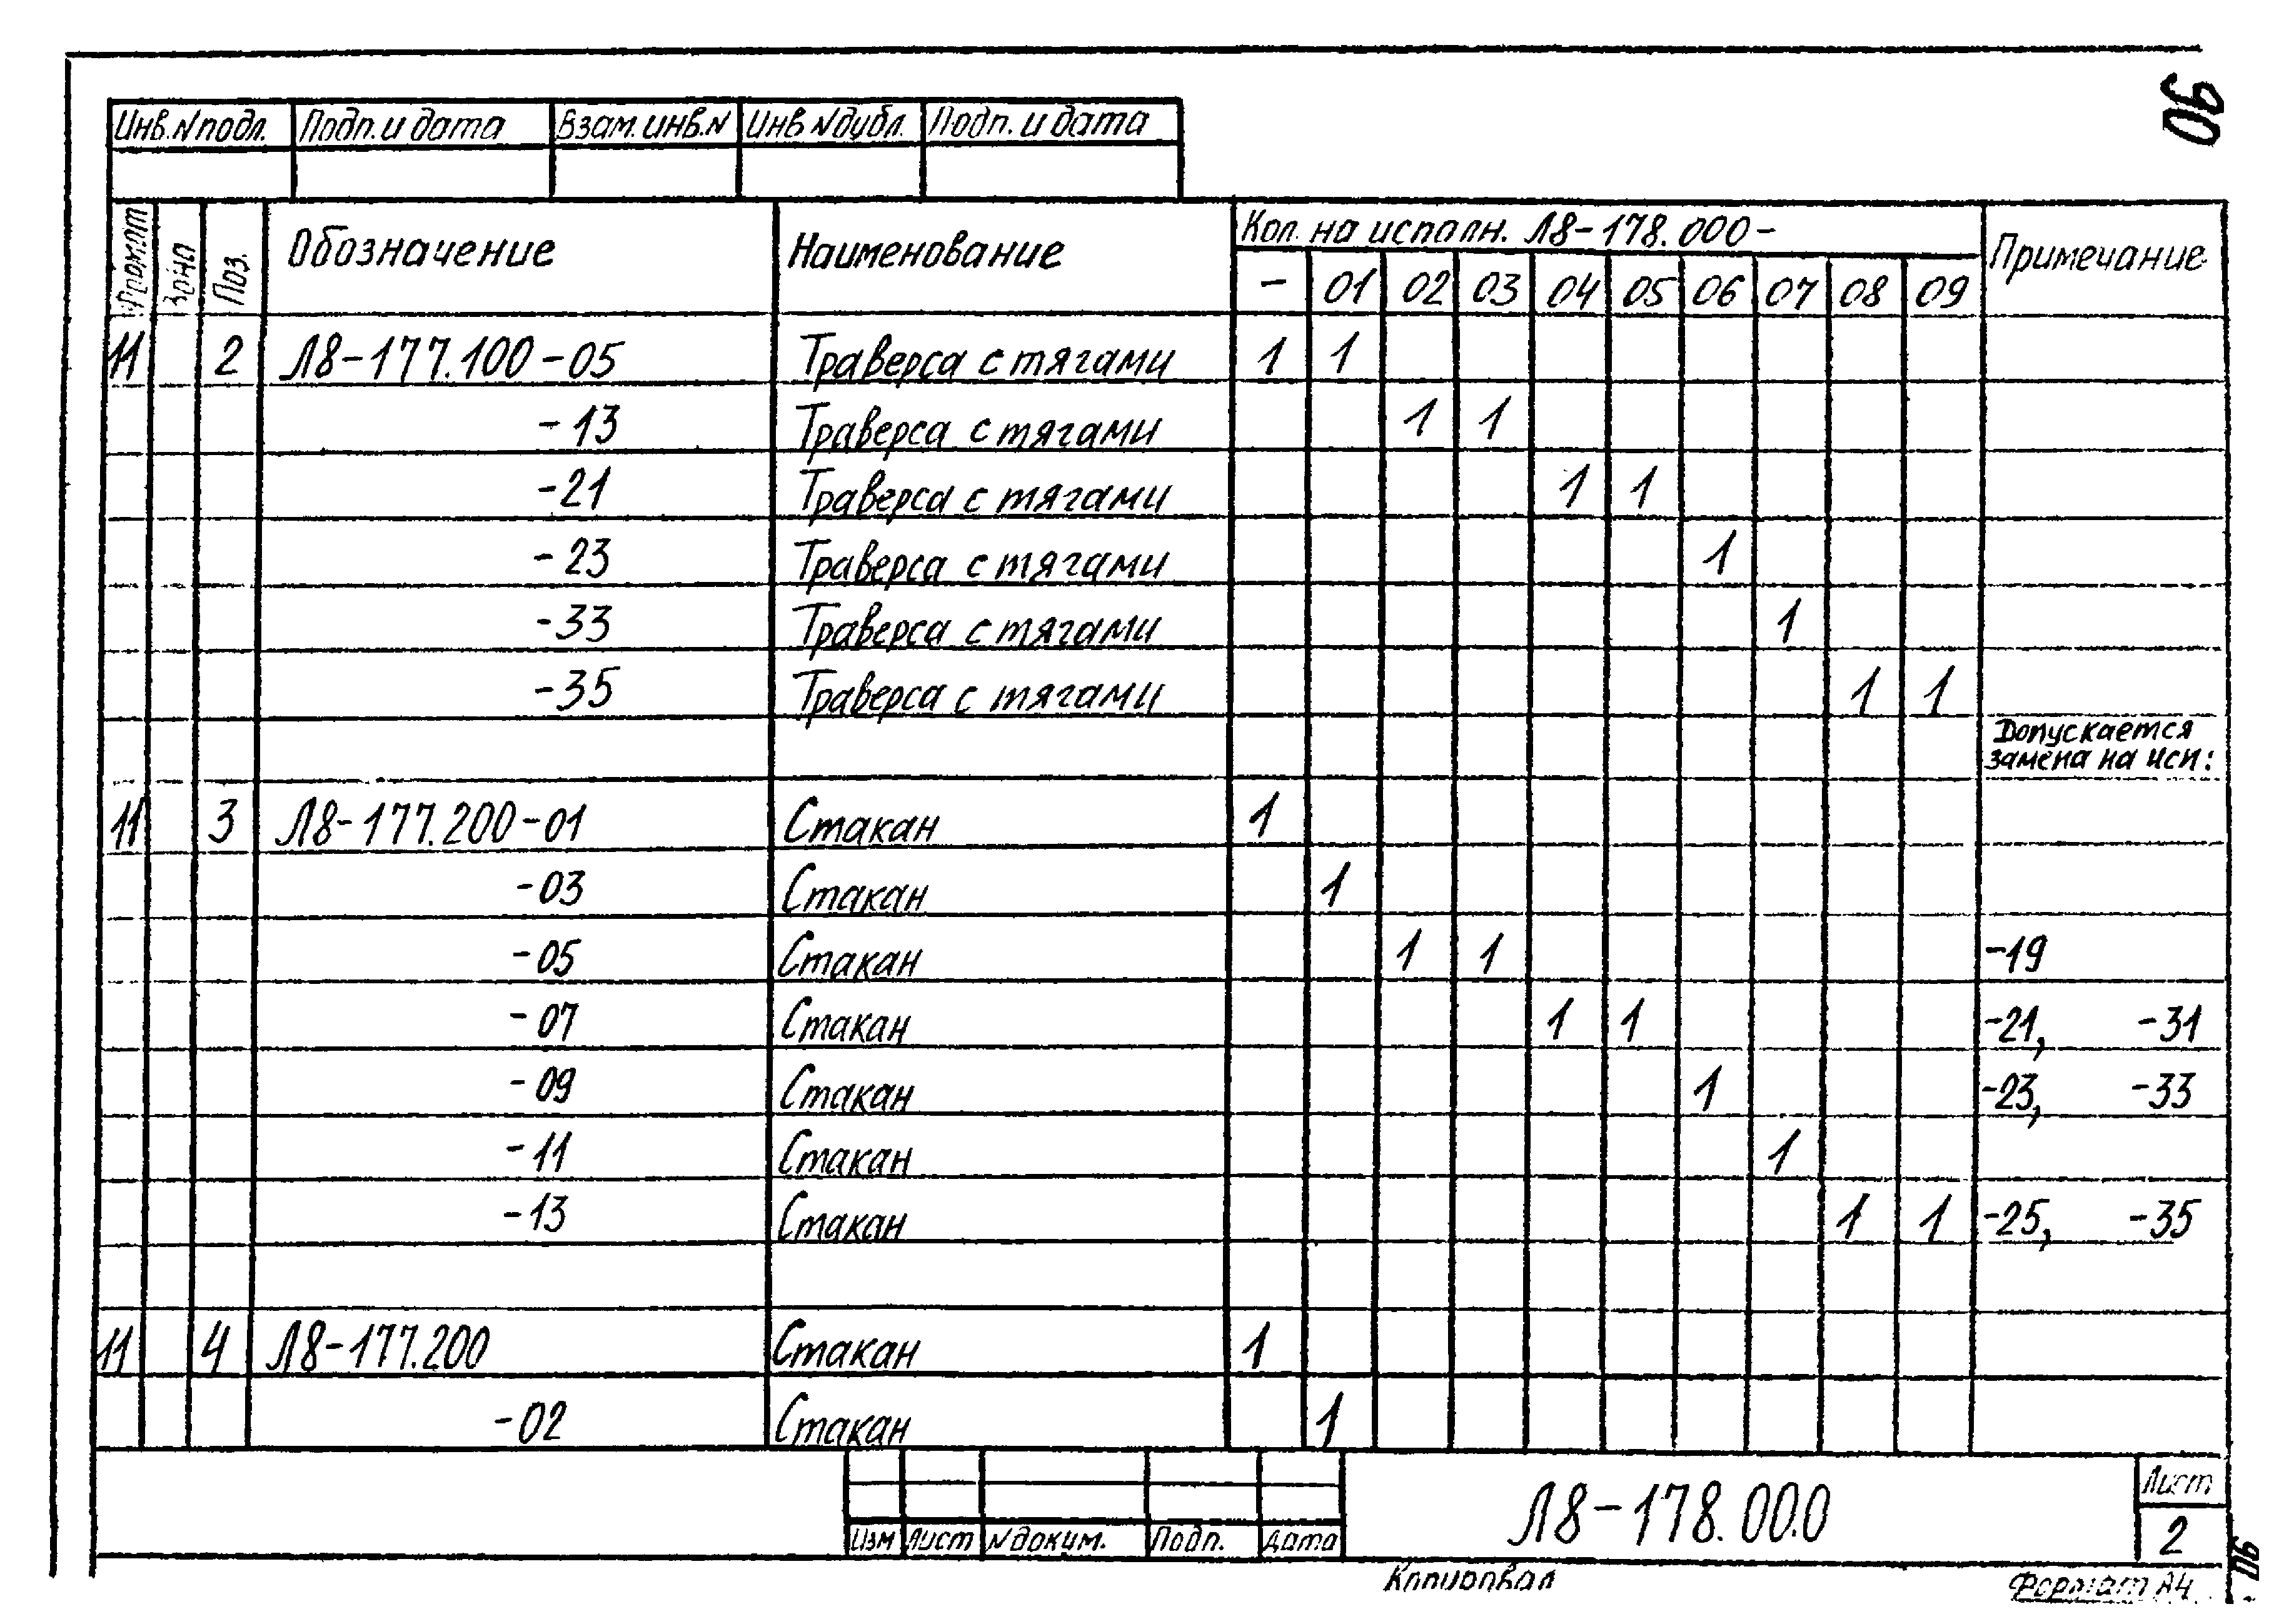 90
Инв.N подл. Подп. и дата Взам. инв. N Инв N дубл. Подп. и дата
Формат Зона Поз. Обозначение Наименование Кол. на исполн. Л8-178.000- Примечание
- 01 02 03 04 05 06 07 08 09
11 2 Л8-177.100-05 Траверса с тягами 1 1
-13 Траверса с тягами 1 1
-21 Траверса с тягами 1 1
-23 Траверса с тягами 1
-33 Траверса с тягами 1
-35 Траверса с тягами 1 1
Допускается
замена на исп:
11 3 Л8-177.200-01 Стакан 1
-03 Стакан 1
-05 Стакан 1 1 -19
-07 Стакан 1 1 -21, -31
-09 Стакан 1 -23, -33
-11 Стакан 1
-13 Стакан 1 1 -25, -35
11 4 Л8-177.200 Стакан 1
-02 Стакан 1
Л8-178.000 Лист
2
Изм Лист N доким. Подп. Дата
Копировал Формат А4
90